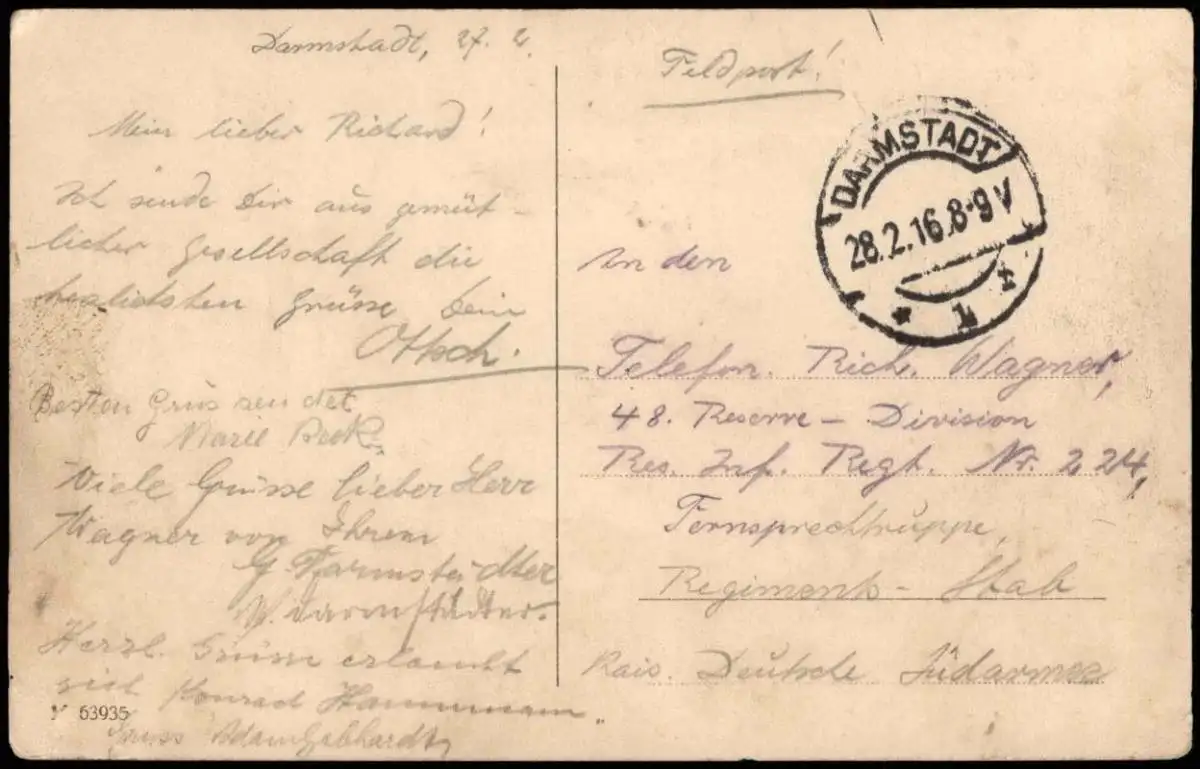 Darmstadt, 27. 2.
Mein lieber Richard!
Ich sende Dir aus gemüt-
licher Gesellschaft die
herzlichsten Grüsse Dein
Besten Grus sendet
Marie
Viele Grüsse lieber Herr
Wagner von Ihrem
G Darmstädter
W. Darmstädter.
Herzl. Grüsse erlaubt
sich Konrad
Gruss Adam Gebhardt
63935
Feldpost!
DARMSTADT
28.2.16.8-9V
* 1 *
An den
Telefon. Rich. Wagner,
48. Reserve - Division
Res. Inf. Regt. Nr. 224,
Fernsprechtruppe,
Regiments - Stab
Kais. Deutsche Südarmee